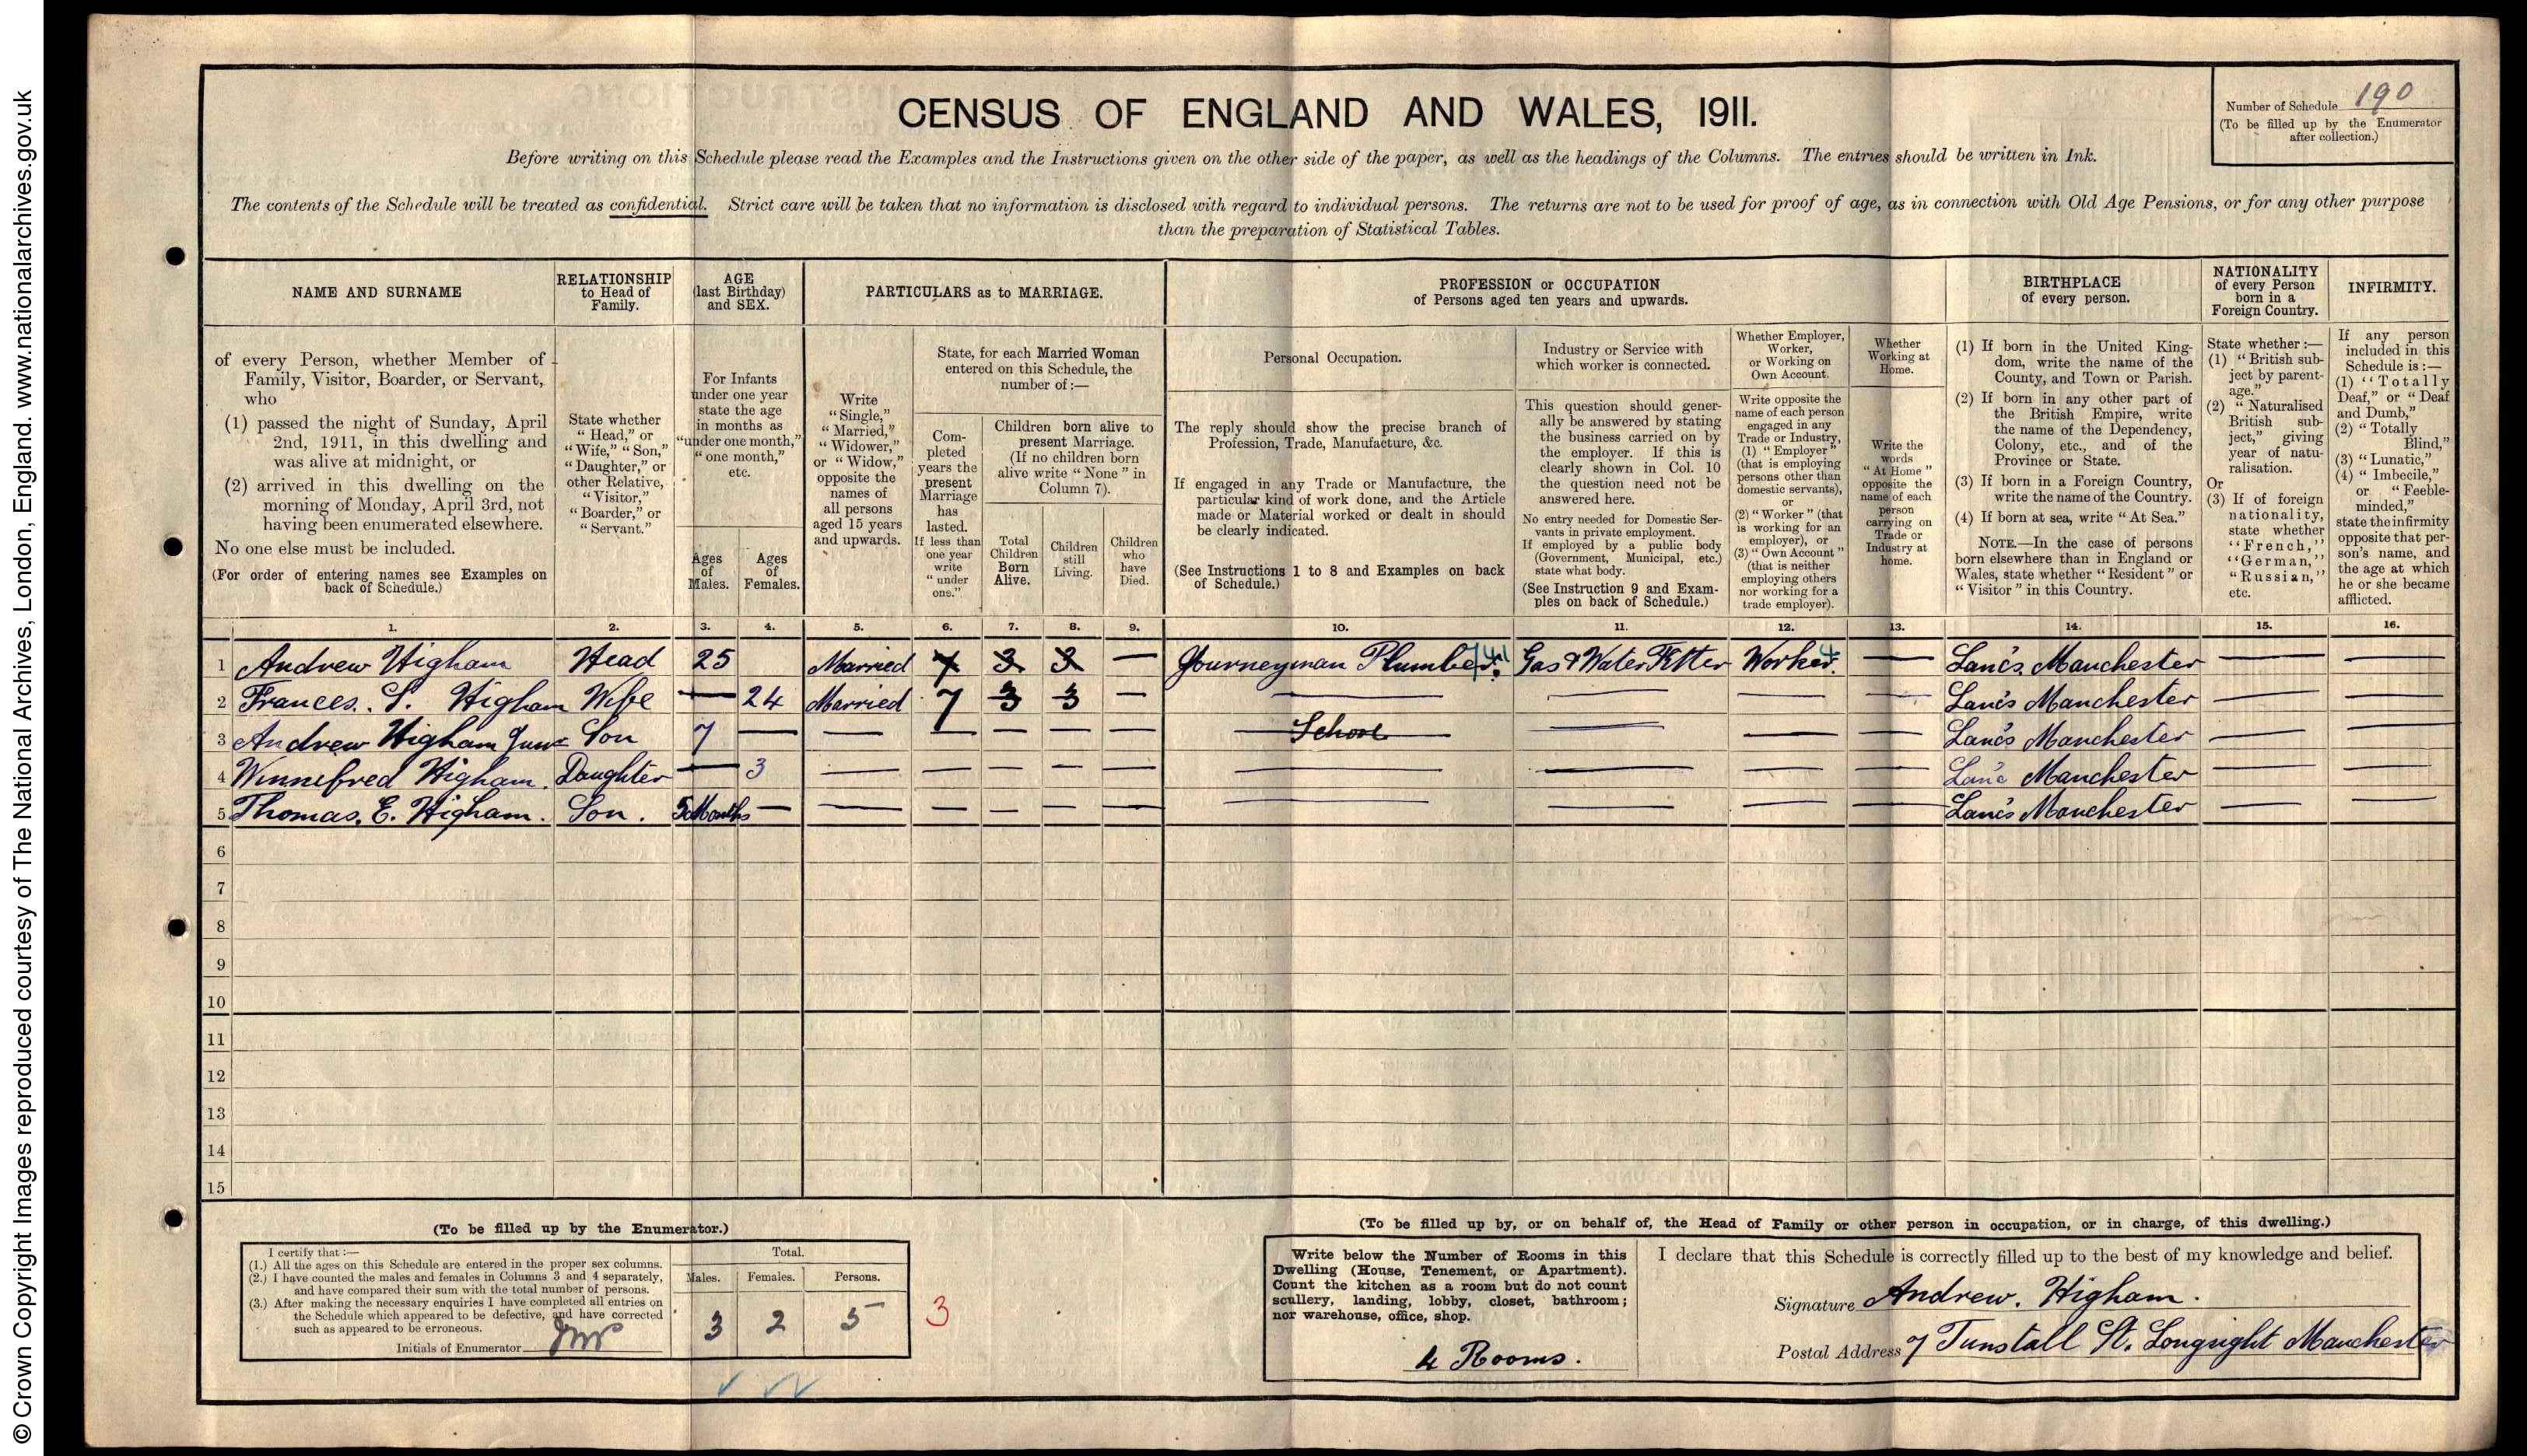 © Crown Copyright Images reproduced courtesy of The National Archives, London, England. www.nationalarchives.gov.uk
CENSUS OF ENGLAND AND WALES, 1911.
Number of Schedule 190
(To be filled up by the Enumerator
after collection.)
Before writing on this Schedule please read the Examples and the Instructions given on the other side of the paper, as well as the headings of the Columns. The entries should be written in Ink.
The contents of the Schedule will be treated as confidential. Strict care will be taken that no information is disclosed with regard to individual persons. The returns are not to be used for proof of age, as in connection with Old Age Pensions, or for any other purpose
than the preparation of Statistical Tables.
NAME AND SURNAME
of every Person, whether Member of
Family, Visitor, Boarder, or Servant,
who
(1) passed the night of Sunday, April
2nd, 1911, in this dwelling and
was alive at midnight, or
(2) arrived in this dwelling on the
morning of Monday, April 3rd, not
having been enumerated elsewhere.
No one else must be included.
(For order of entering names see Examples on
back of Schedule.)
RELATIONSHIP
to Head of
Family.
State whether
"Head," or
"Wife," "Son,"
"Daughter," or
other Relative,
"Visitor,"
"Boarder," or
"Servant."
AGE
(last Birthday)
and SEX.
For Infants
under one year
state the age
in months as
"under one month,"
"one month,"
etc.
Ages
of
Males.
Ages
of
Females.
PARTICULARS as to MARRIAGE.
Write
"Single,"
"Married,"
"Widower,"
or "Widow,"
opposite the
names of
all persons
aged 15 years
and upwards.
State, for each Married Woman
entered on this Schedule, the
number of:—
Com-
pleted
years the
present
Marriage
has
lasted.
If less than
one year
write
"under
one."
Children born alive to
present Marriage.
(If no children born
alive write "None" in
Column 7).
Total
Children
Born
Alive.
Children
still
Living.
Children
who
have
Died.
PROFESSION or OCCUPATION
of Persons aged ten years and upwards.
Personal Occupation.
The reply should show the precise branch of
Profession, Trade, Manufacture, &c.
If engaged in any Trade or Manufacture, the
particular kind of work done, and the Article
made or Material worked or dealt in should
be clearly indicated.
(See Instructions 1 to 8 and Examples on back
of Schedule.)
Industry or Service with
which worker is connected.
This question should gener-
ally be answered by stating
the business carried on by
the employer. If this is
clearly shown in Col. 10
the question need not be
answered here.
No entry needed for Domestic Ser-
vants in private employment.
If employed by a public body
(Government, Municipal, etc.)
state what body.
(See Instruction 9 and Exam-
ples on back of Schedule.)
Whether Employer,
Worker,
or Working on
Own Account.
Write opposite the
name of each person
engaged in any
Trade or Industry,
(1) "Employer"
(that is employing
persons other than
domestic servants),
or
(2) "Worker" (that
is working for an
employer), or
(3) "Own Account"
(that is neither
employing others
nor working for a
trade employer).
Whether
Working at
Home.
Write the
words
"At Home"
opposite the
name of each
person
carrying on
Trade or
Industry at
home.
BIRTHPLACE
of every person.
(1) If born in the United King-
dom, write the name of the
County, and Town or Parish.
(2) If born in any other part of
the British Empire, write
the name of the Dependency,
Colony, etc., and of the
Province or State.
(3) If born in a Foreign Country,
write the name of the Country.
(4) If born at sea, write "At Sea."
NOTE.—In the case of persons
born elsewhere than in England or
Wales, state whether "Resident" or
"Visitor" in this Country.
NATIONALITY
of every Person
born in a
Foreign Country.
State whether:—
(1) "British sub-
ject by parent-
age."
(2) "Naturalised
British sub-
ject," giving
year of natu-
ralisation.
Or
(3) If of foreign
nationality,
state whether
"French,"
"German,"
"Russian,"
etc.
INFIRMITY.
If any person
included in this
Schedule is:—
(1) "Totally
Deaf," or "Deaf
and Dumb,"
(2) "Totally
Blind,"
(3) "Lunatic,"
(4) "Imbecile,"
or "Feeble-
minded,"
state the infirmity
opposite that per-
son's name, and
the age at which
he or she became
afflicted.
1. 2. 3. 4. 5. 6. 7. 8. 9. 10. 11. 12. 13. 14. 15. 16.
1 Andrew Higham Head 25 Married 7 3 3 — Journeyman Plumber. Gas & Water Fitter Worker. — Lancs. Manchester — —
2 Frances. S. Higham Wife — 24 Married 7 3 3 — — — — — Lancs Manchester — —
3 Andrew Higham Junr Son 7 — — — — — — School — — — Lancs Manchester — —
4 Winnefred Higham. Daughter — 3 — — — — — — — — — Lanc Manchester — —
5 Thomas. E. Higham. Son. 5 Months — — — — — — — — — — Lancs Manchester — —
6
7
8
9
10
11
12
13
14
15
(To be filled up by the Enumerator.)
I certify that:—
(1.) All the ages on this Schedule are entered in the proper sex columns.
(2.) I have counted the males and females in Columns 3 and 4 separately,
and have compared their sum with the total number of persons.
(3.) After making the necessary enquiries I have completed all entries on
the Schedule which appeared to be defective, and have corrected
such as appeared to be erroneous.
Initials of Enumerator
Total.
Males. Females. Persons.
3 2 5
3
(To be filled up by, or on behalf of, the Head of Family or other person in occupation, or in charge, of this dwelling.)
Write below the Number of Rooms in this
Dwelling (House, Tenement, or Apartment).
Count the kitchen as a room but do not count
scullery, landing, lobby, closet, bathroom;
nor warehouse, office, shop.
4 Rooms.
I declare that this Schedule is correctly filled up to the best of my knowledge and belief.
Signature Andrew. Higham.
Postal Address 7 Tunstall St. Longsight Manchester